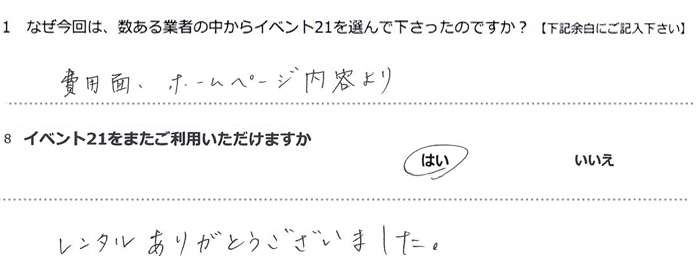 1 なぜ今回は、数ある業者の中からイベント21を選んで下さったのですか？【下記余白にご記入下さい】
費用面、ホームページ内容より
8 イベント21をまたご利用いただけますか
はい いいえ
レンタルありがとうございました。